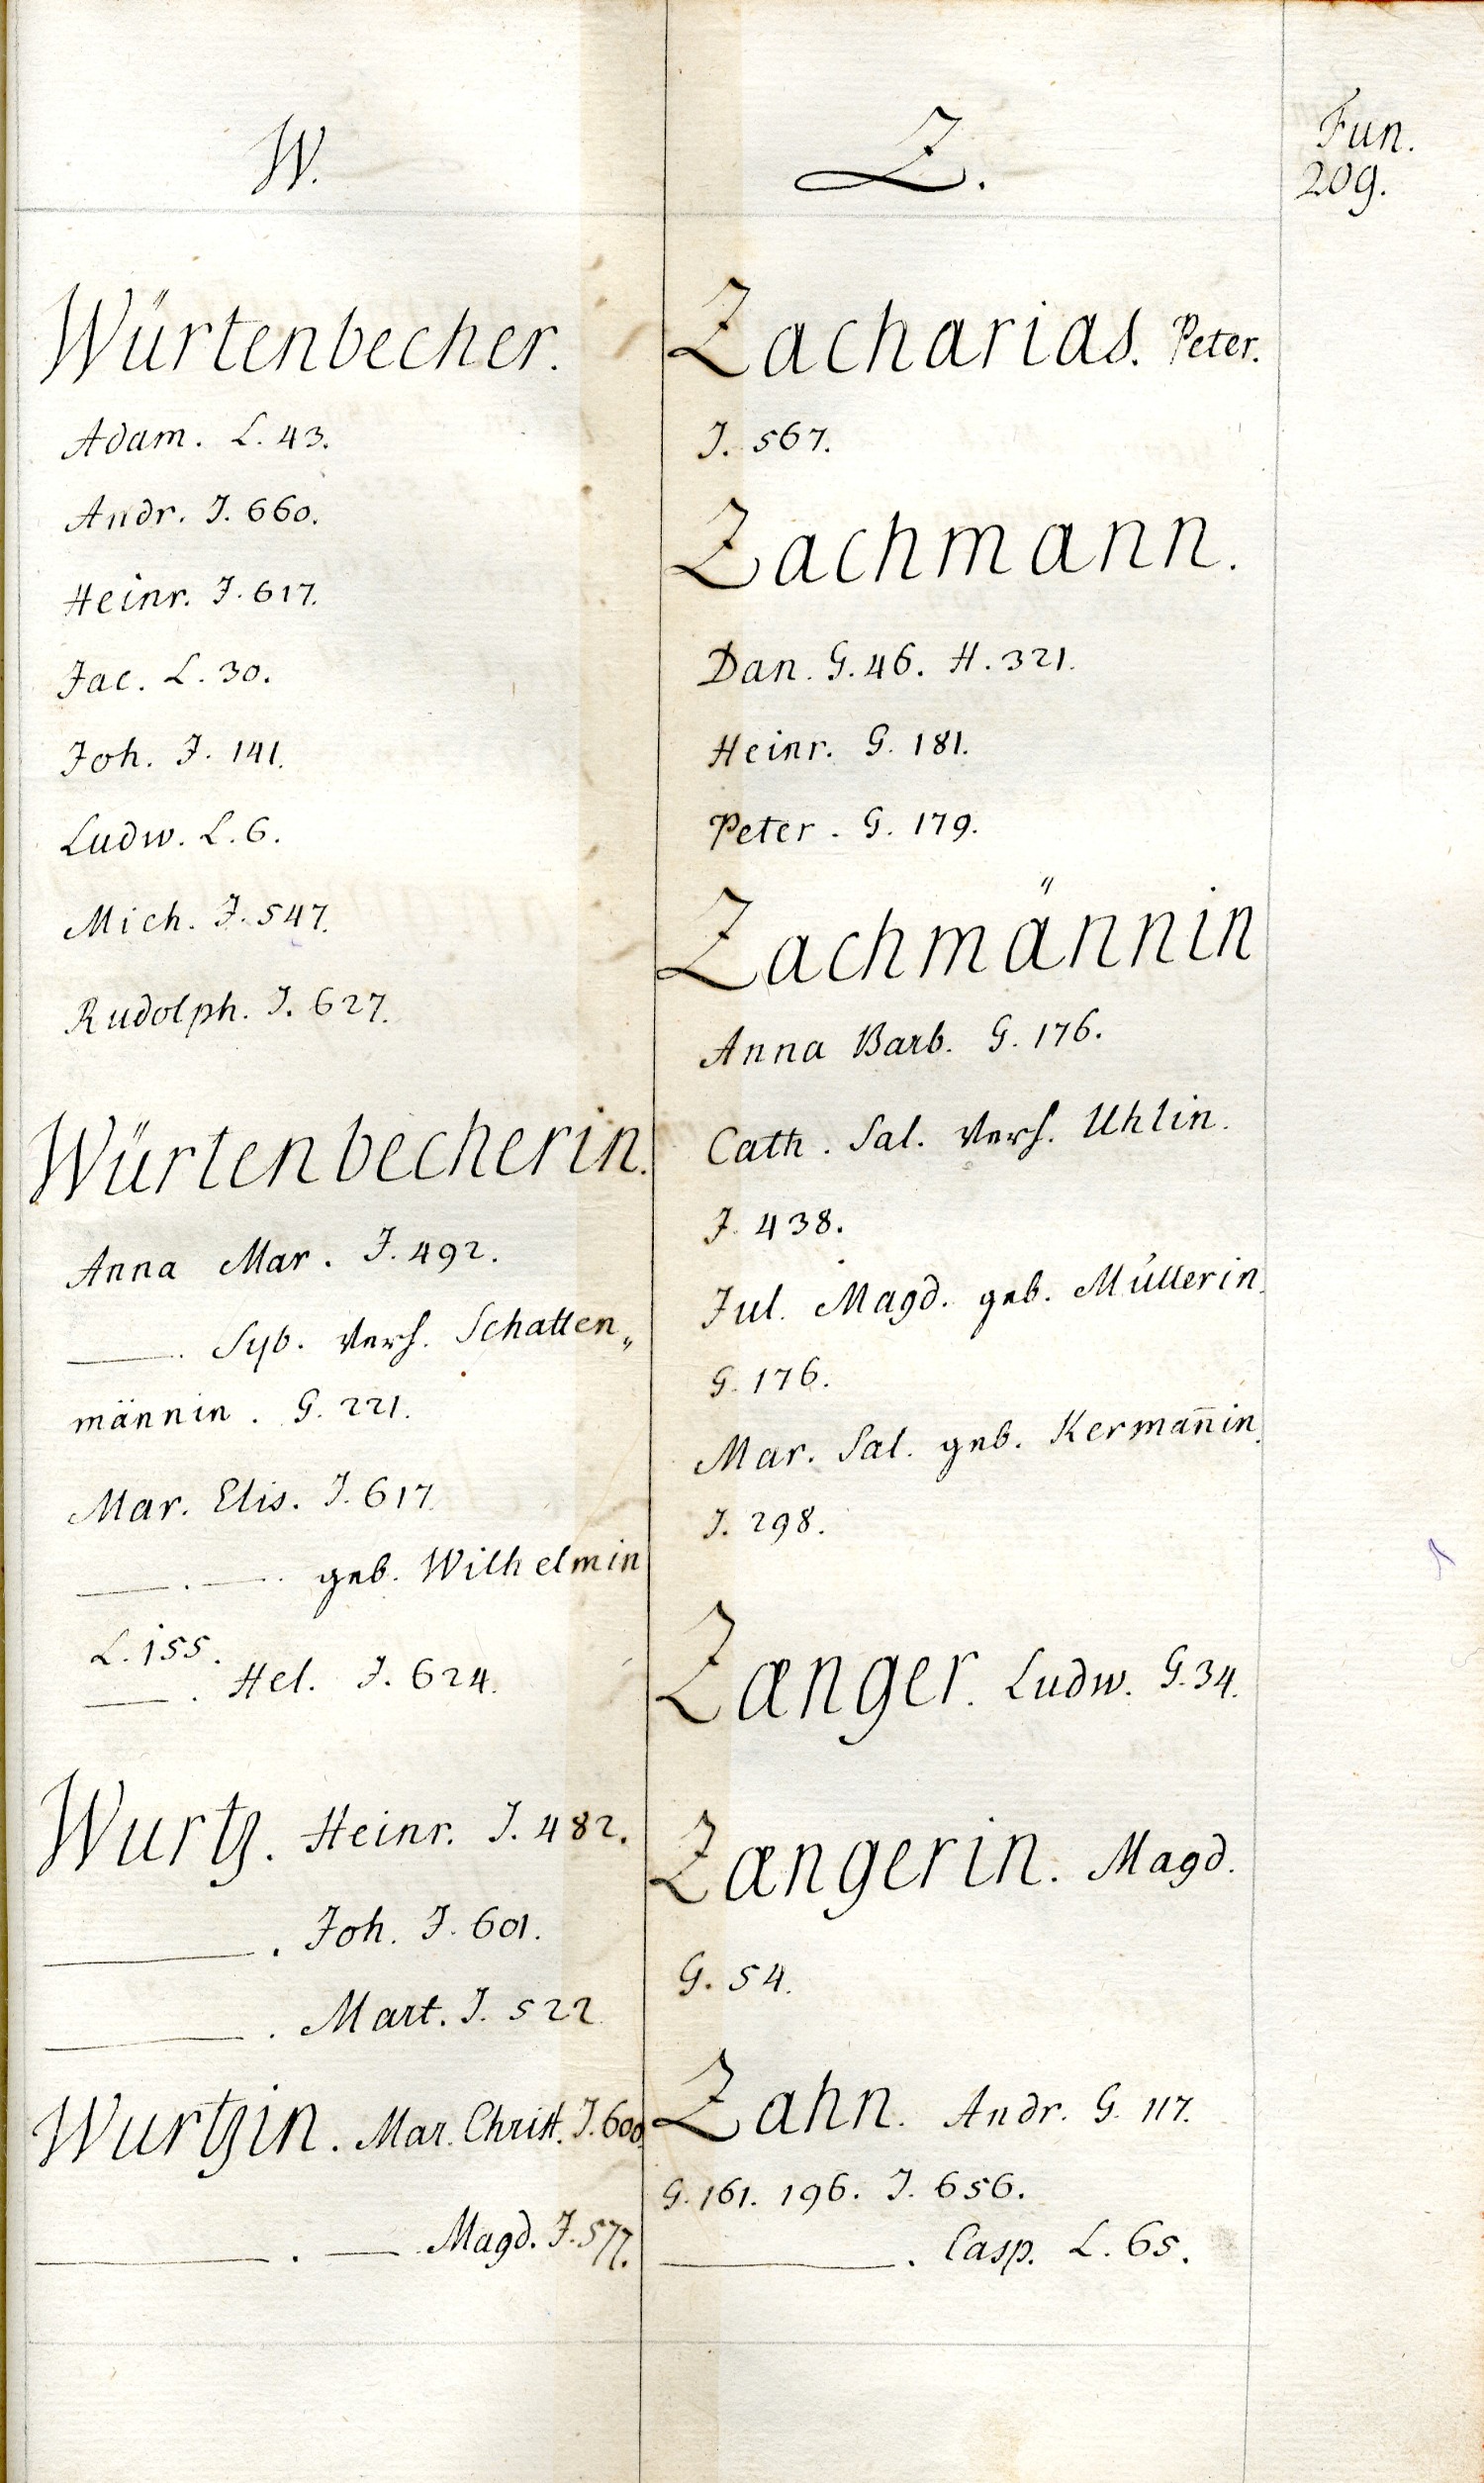 W.
Würtenbecher.
Adam. L. 43.
Andr. J. 660.
Heinr. J. 617.
Jac. L. 30.
Joh. J. 141.
Ludw. L. 6.
Mich. J. 547.
Rudolph. J. 627.
Würtenbecherin.
Anna Mar. J. 492.
——. Syb. verh. Schatten„
männin. G. 221.
Mar. Elis. J. 617.
——.——. geb. Wilhelmin
L. 155.
——. Hel. J. 624.
Wurtz. Heinr. J. 482.
——. Joh. J. 601.
——. Mart. J. 522.
Wurtzin. Mar. Christ. J. 600.
——. —— Magd. J. 577.
Z.
Zacharias. Peter.
J. 567.
Zachmann.
Dan. G. 46. H. 321.
Heinr. G. 181.
Peter. G. 179.
Zachmännin
Anna Barb. G. 176.
Cath. Sal. verh. Uhlin.
J. 438.
Jul. Magd. geb. Müllerin.
G. 176.
Mar. Sal. geb. Kerman̄in.
J. 298.
Zænger. Ludw. G. 34.
Zængerin. Magd.
G. 54.
Zahn. Andr. G. 117.
G. 161. 196. J. 656.
——. Casp. L. 65.
Fun.
209.